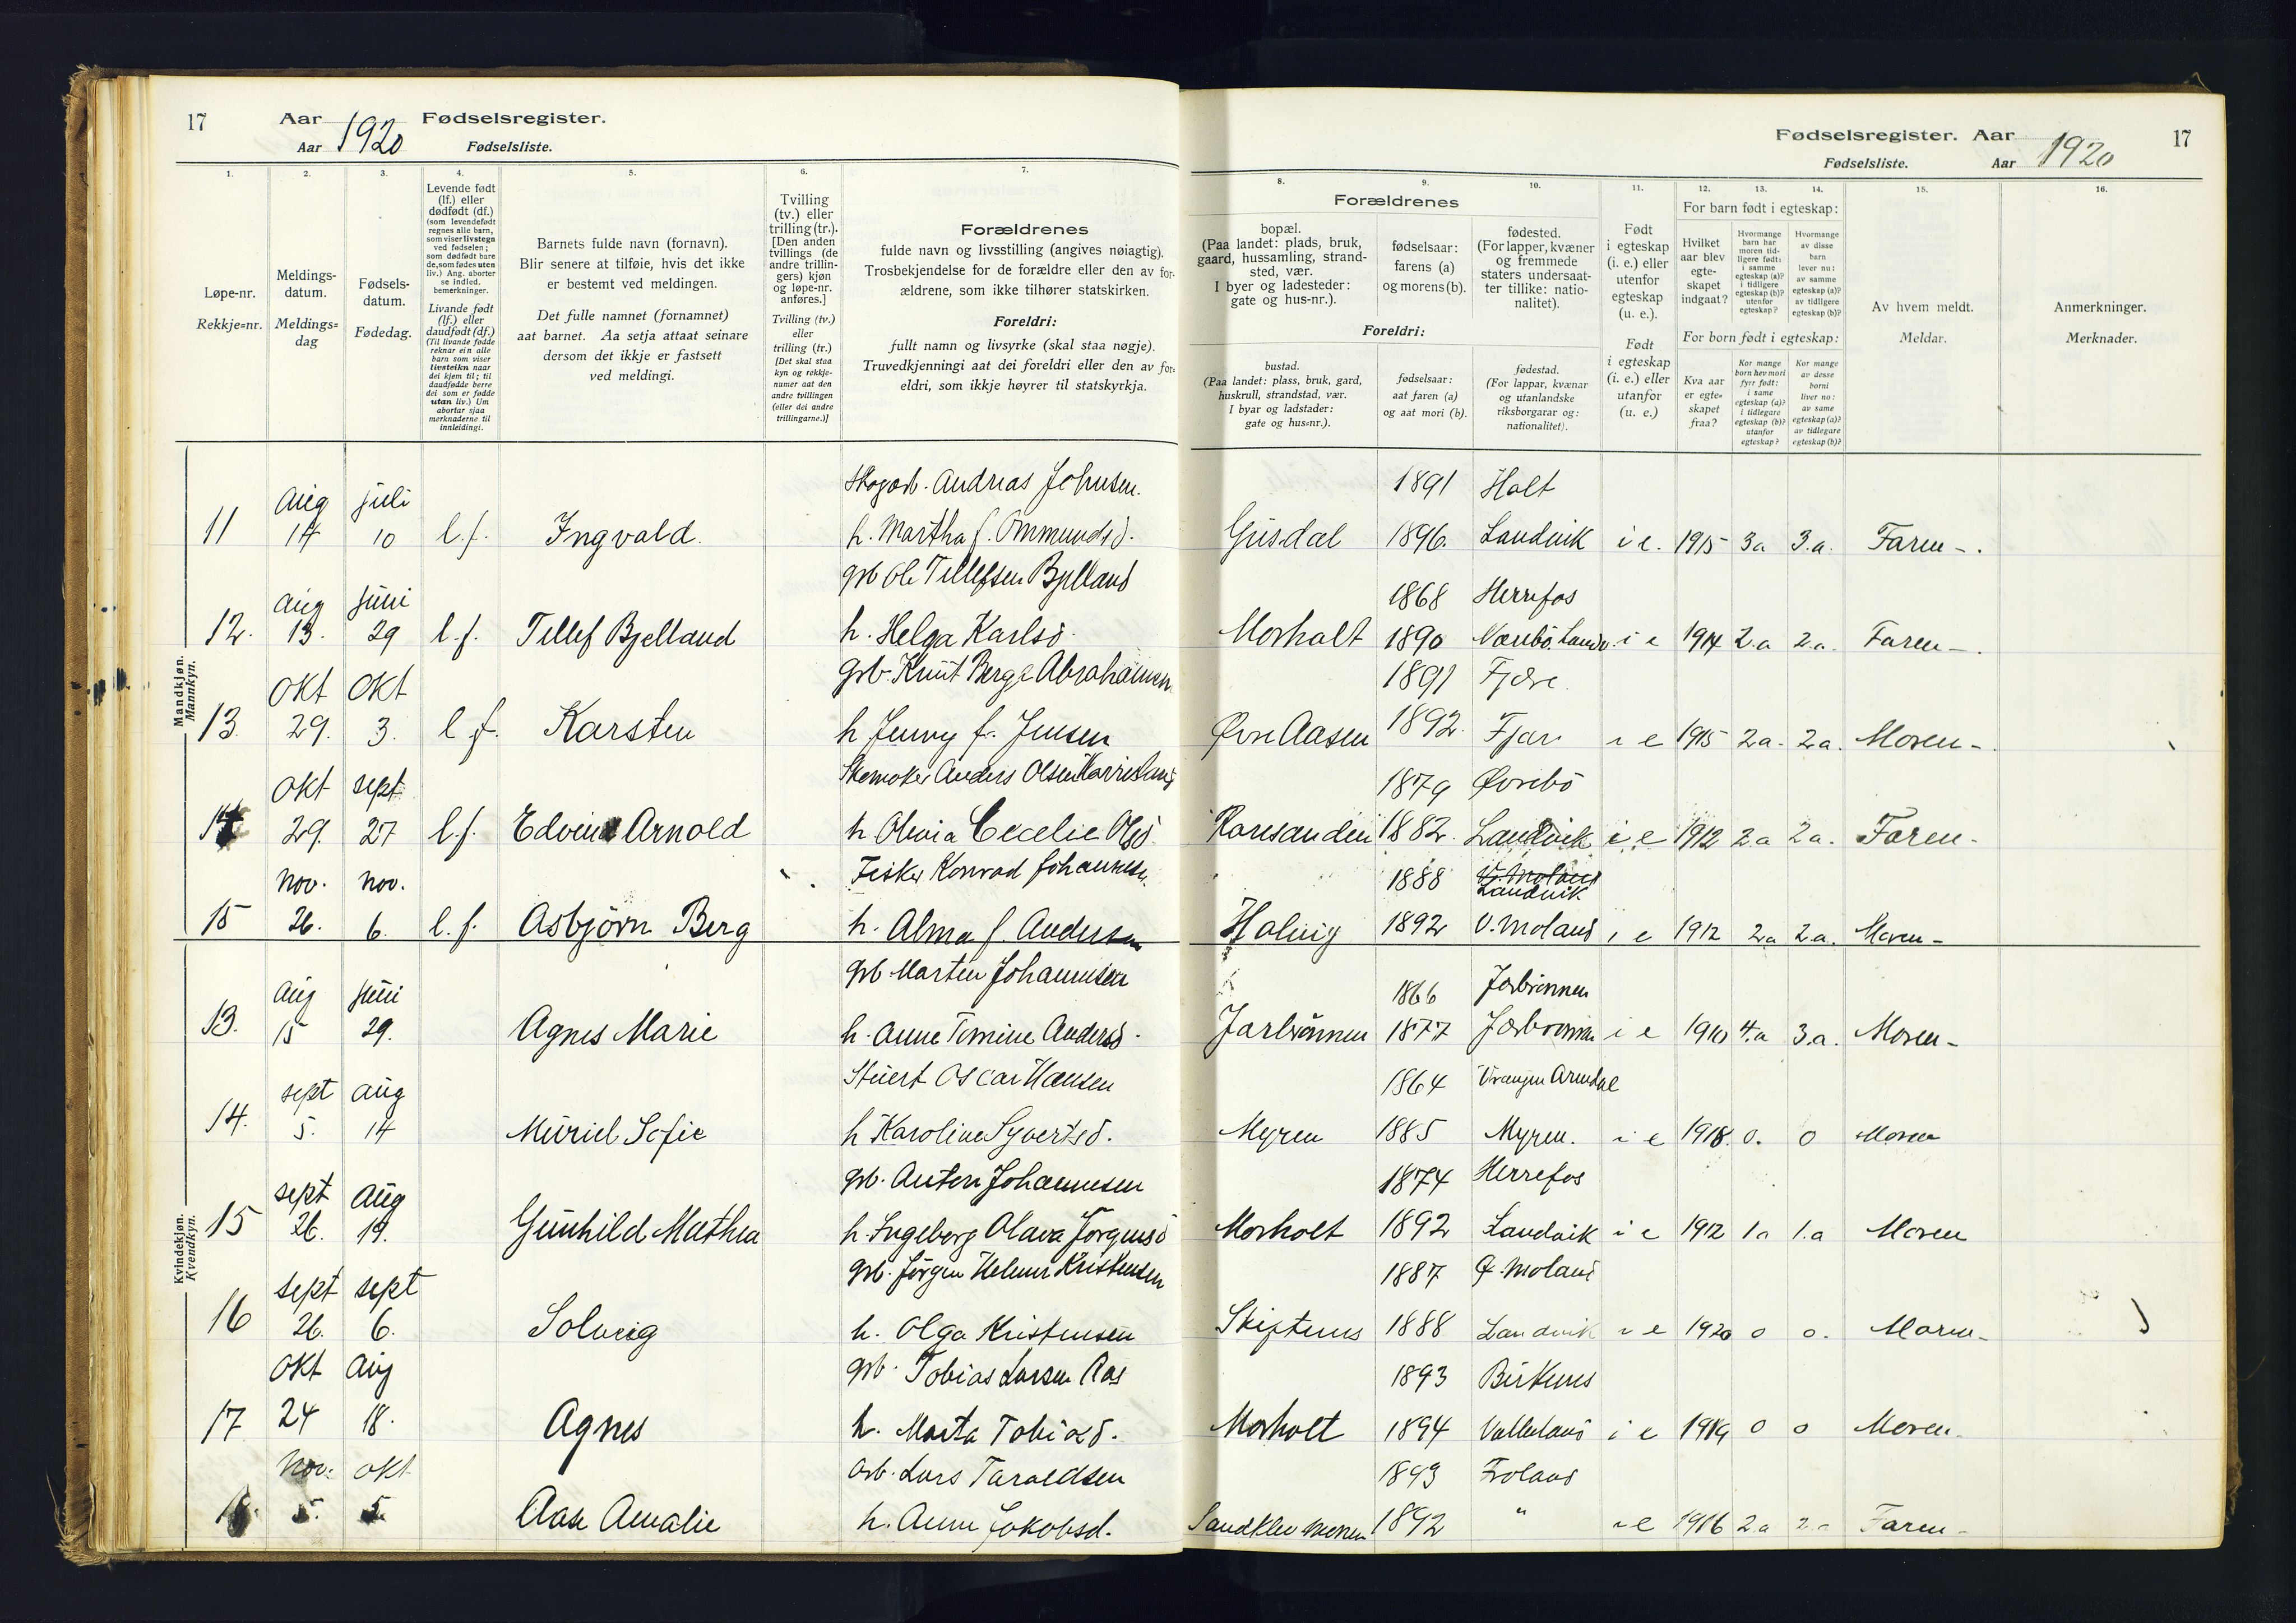 17 Aar 1920 Fødselsregister.
Aar Fødselsliste.
1. 2. 3. 4. 5. 6. 7.
Løpe-nr.
Rekkje=nr.
Meldings-
datum.
Meldings=
dag
Fødsels-
datum.
Fødedag.
Levende født
(lf.) eller
dødfødt (df.)
(som levendefødt
regnes alle barn,
som viser livstegn
ved fødselen;
som dødfødt bare
de, som fødes uten
liv.) Ang. aborter
se indled.
bemerkninger.
Livande født
(lf.) eller
daudfødt (df.)
(Til livande fødde
reknar ein alle
barn som viser
livsteikn naar
dei kjem til; til
daudfødde berre
dei som er fødde
utan liv.) Um
abortar sjaa
merknaderne til
innleidingi.
Barnets fulde navn (fornavn).
Blir senere at tilføie, hvis det ikke
er bestemt ved meldingen.
Det fulle namnet (fornamnet)
aat barnet. Aa setja attaat seinare
dersom det ikkje er fastsett
ved meldingi.
Tvilling
(tv.) eller
trilling (tr.).
[Den anden
tvillings (de
andre trillin-
gers) kjøn
og løpe-nr.
anføres.]
Tvilling (tv.)
eller
trilling (tr.)
[Det skal staa
kyn og rekkje-
numer aat den
andre tvillingen
(eller dei andre
trillingarne.)]
Forældrenes
fulde navn og livsstilling (angives nøiagtig).
Trosbekjendelse for de forældre eller den av for-
ældrene, som ikke tilhører statskirken.
Foreldri:
fullt namn og livsyrke (skal staa nøgje).
Truvedkjenningi aat dei foreldri eller den av for-
eldri, som ikkje høyrer til statskyrkja.
Mandkjøn.
Mannkyn.
Aug juli Skogarb. Andreas Johnsen.
11 14 10 l.f. Ingvald. h. Martha f. Ommundsd.
aug juni grb Ole Tellefsen Bjelland
12. 13. 29 l.f. Tellef Bjelland h. Helga Karlsd.
Okt Okt grb. Knut Berge Abrahamsen
13. 29. 3. l f. Karsten h Jenny f. Jensen
Okt sept Skomaker Anders Olsen
14 29. 27 l.f. Edvin Arnold h Olivia Cecelie Olsd.
nov. nov. Fisker Konrad Johannesen.
15 26. 6. l.f. Asbjörn Berg h. Alma f. Andersen
Kvindekjøn.
Kvendkyn.
aug juni grb. Marten Johannesen
13. 15 29. Agnes Marie h. Anne Tomine Andersd.
sept aug Stuert Oscar Hansen
14. 5. 14 Muriel Sofie h Karoline Syvertsd.
sept Aug grb. Anton Johannesen
15 26. 19. Gunhild Mathea h. Ingeborg Olava Jörgensd
sept sept grb. Jörgen Helmer Kristensen
16 26. 6. Solveig h. Olga Kristensen
Okt Aug grb. Tobias Larsen Aas
17 24 18. Agnes h. Marta Tobiasd.
Nov. okt arb. Lars Taraldsen
18. 5. 5. Aase Amalie h. Anne Jakobsd.
Fødselsregister. Aar 1920 17
Fødselsliste. Aar
8. 9. 10. 11. 12. 13. 14. 15. 16.
Forældrenes
bopæl.
(Paa landet: plads, bruk,
gaard, hussamling, strand-
sted, vær.
I byer og ladesteder:
gate og hus-nr.).
fødselsaar:
farens (a)
og morens (b).
fødested.
(For lapper, kvæner
og fremmede
staters undersaat-
ter tillike: natio-
nalitet).
Foreldri:
bustad.
(Paa landet: plass, bruk, gard,
huskrull, strandstad, vær.
I byar og ladstader:
gate og hus=nr.).
fødselsaar:
aat faren (a)
og aat mori (b).
fødestad.
(For lappar, kvænar
og utanlandske
riksborgarar og:
nationalitet).
Født
i egteskap
(i. e.) eller
utenfor
egteskap
(u. e.).
Født
i egteskap
(i. e.) eller
utanfor
(u. e.)
For barn født i egteskap:
Hvilket
aar blev
egte-
skapet
indgaat?
Hvormange
barn har
moren tid-
ligere født:
i samme
egteskap (a)?
i tidligere
egteskap (b)?
utenfor
egteskap?
Hvormange
av disse
barn
lever nu:
av samme
egteskap (a)?
av tidligere
egteskap (b)?
For born født i egteskap:
Kva aar
er egte=
skapet
fraa?
Kor mange
born hev mori
fyrr født:
i same
egteskap (a)?
i tidlegare
egteskap (b)?
utanfor
egteskap?
Kor mange
av desse
borni
liver no:
av same
egteskap (a)?
av tidlegare
egteskap (b)?
Av hvem meldt.
Meldar.
Anmerkninger.
Merknader.
1891 Holt
Gusdal 1896. Landvik i e. 1915 3a 3.a. Faren -.
1868 Herrefos
Morholt 1890 i e 1914 2.a 2.a. Faren -.
1891 Fjære.
Øvre Aasen 1892. Fjære i e 1915 2a. 2a. Moren -.
1879 Øvrebö
1882. Landvik i e 1912 2.a 2a. Faren -
1888 V. Moland
Landvik
Halvig 1892 V. Moland i e 1912 2a 2.a. Moren -
1866 Jorbrönnen
Jorbrönnen 1877 Jorbrönnen i e 1910 4.a 3.a. Moren -
1864 Arendal
Myren 1885 Myren. i e 1918. 0. 0 Moren
1874 Herrefos
Morholt 1892 Landvik i e 1912 1a 1.a Moren
1887 Ø. Moland
Skiftenes 1888 Landvik i e 1920 0 0. Moren -
1893 Birkenes
Morholt 1894 i e 1919 0 0 Moren -
1893 Froland
1892 " i e 1916 2.a 2.a Faren -